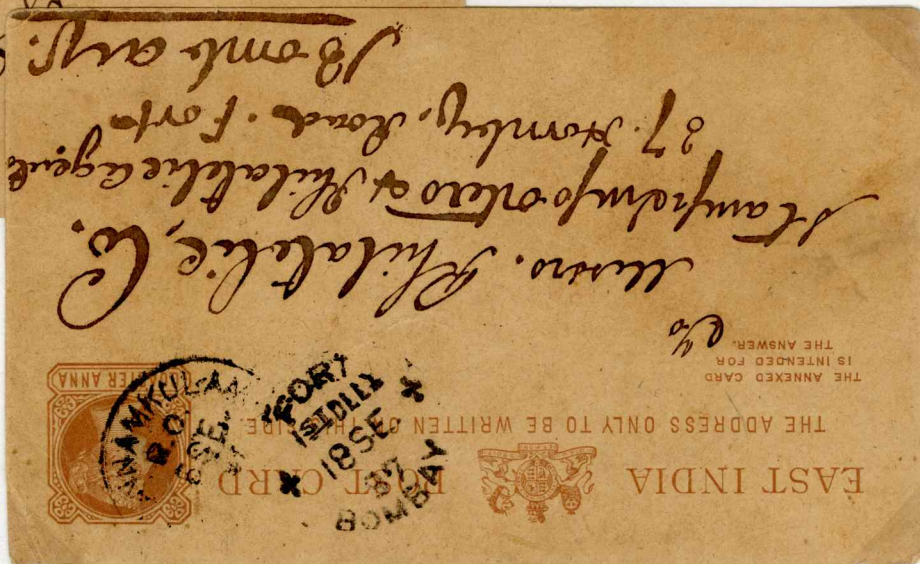 EAST INDIA POST CARD
THE ADDRESS ONLY TO BE WRITTEN ON THIS SIDE.
THE ANNEXED CARD
IS INTENDED FOR
THE ANSWER.
QUARTER ANNA
R.O.
SE.
FORT
1ST DELY
18 SE
87
BOMBAY
Messrs. Philatelic, Co.
Stamp importers & Philatelic agents
27. Hornby, Road. Fort
Bombay.